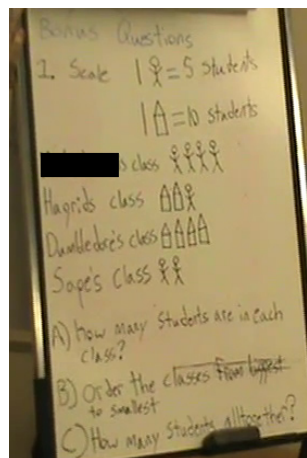 Bonus Questions
1. Scale 1 = 5 students
1 = 10 students
's class
Hagrids class
Dumbledore's class
Sape's class
A) How many students are in each
class?
B) Order the classes from biggest
to smallest
C) How many students alltogether?